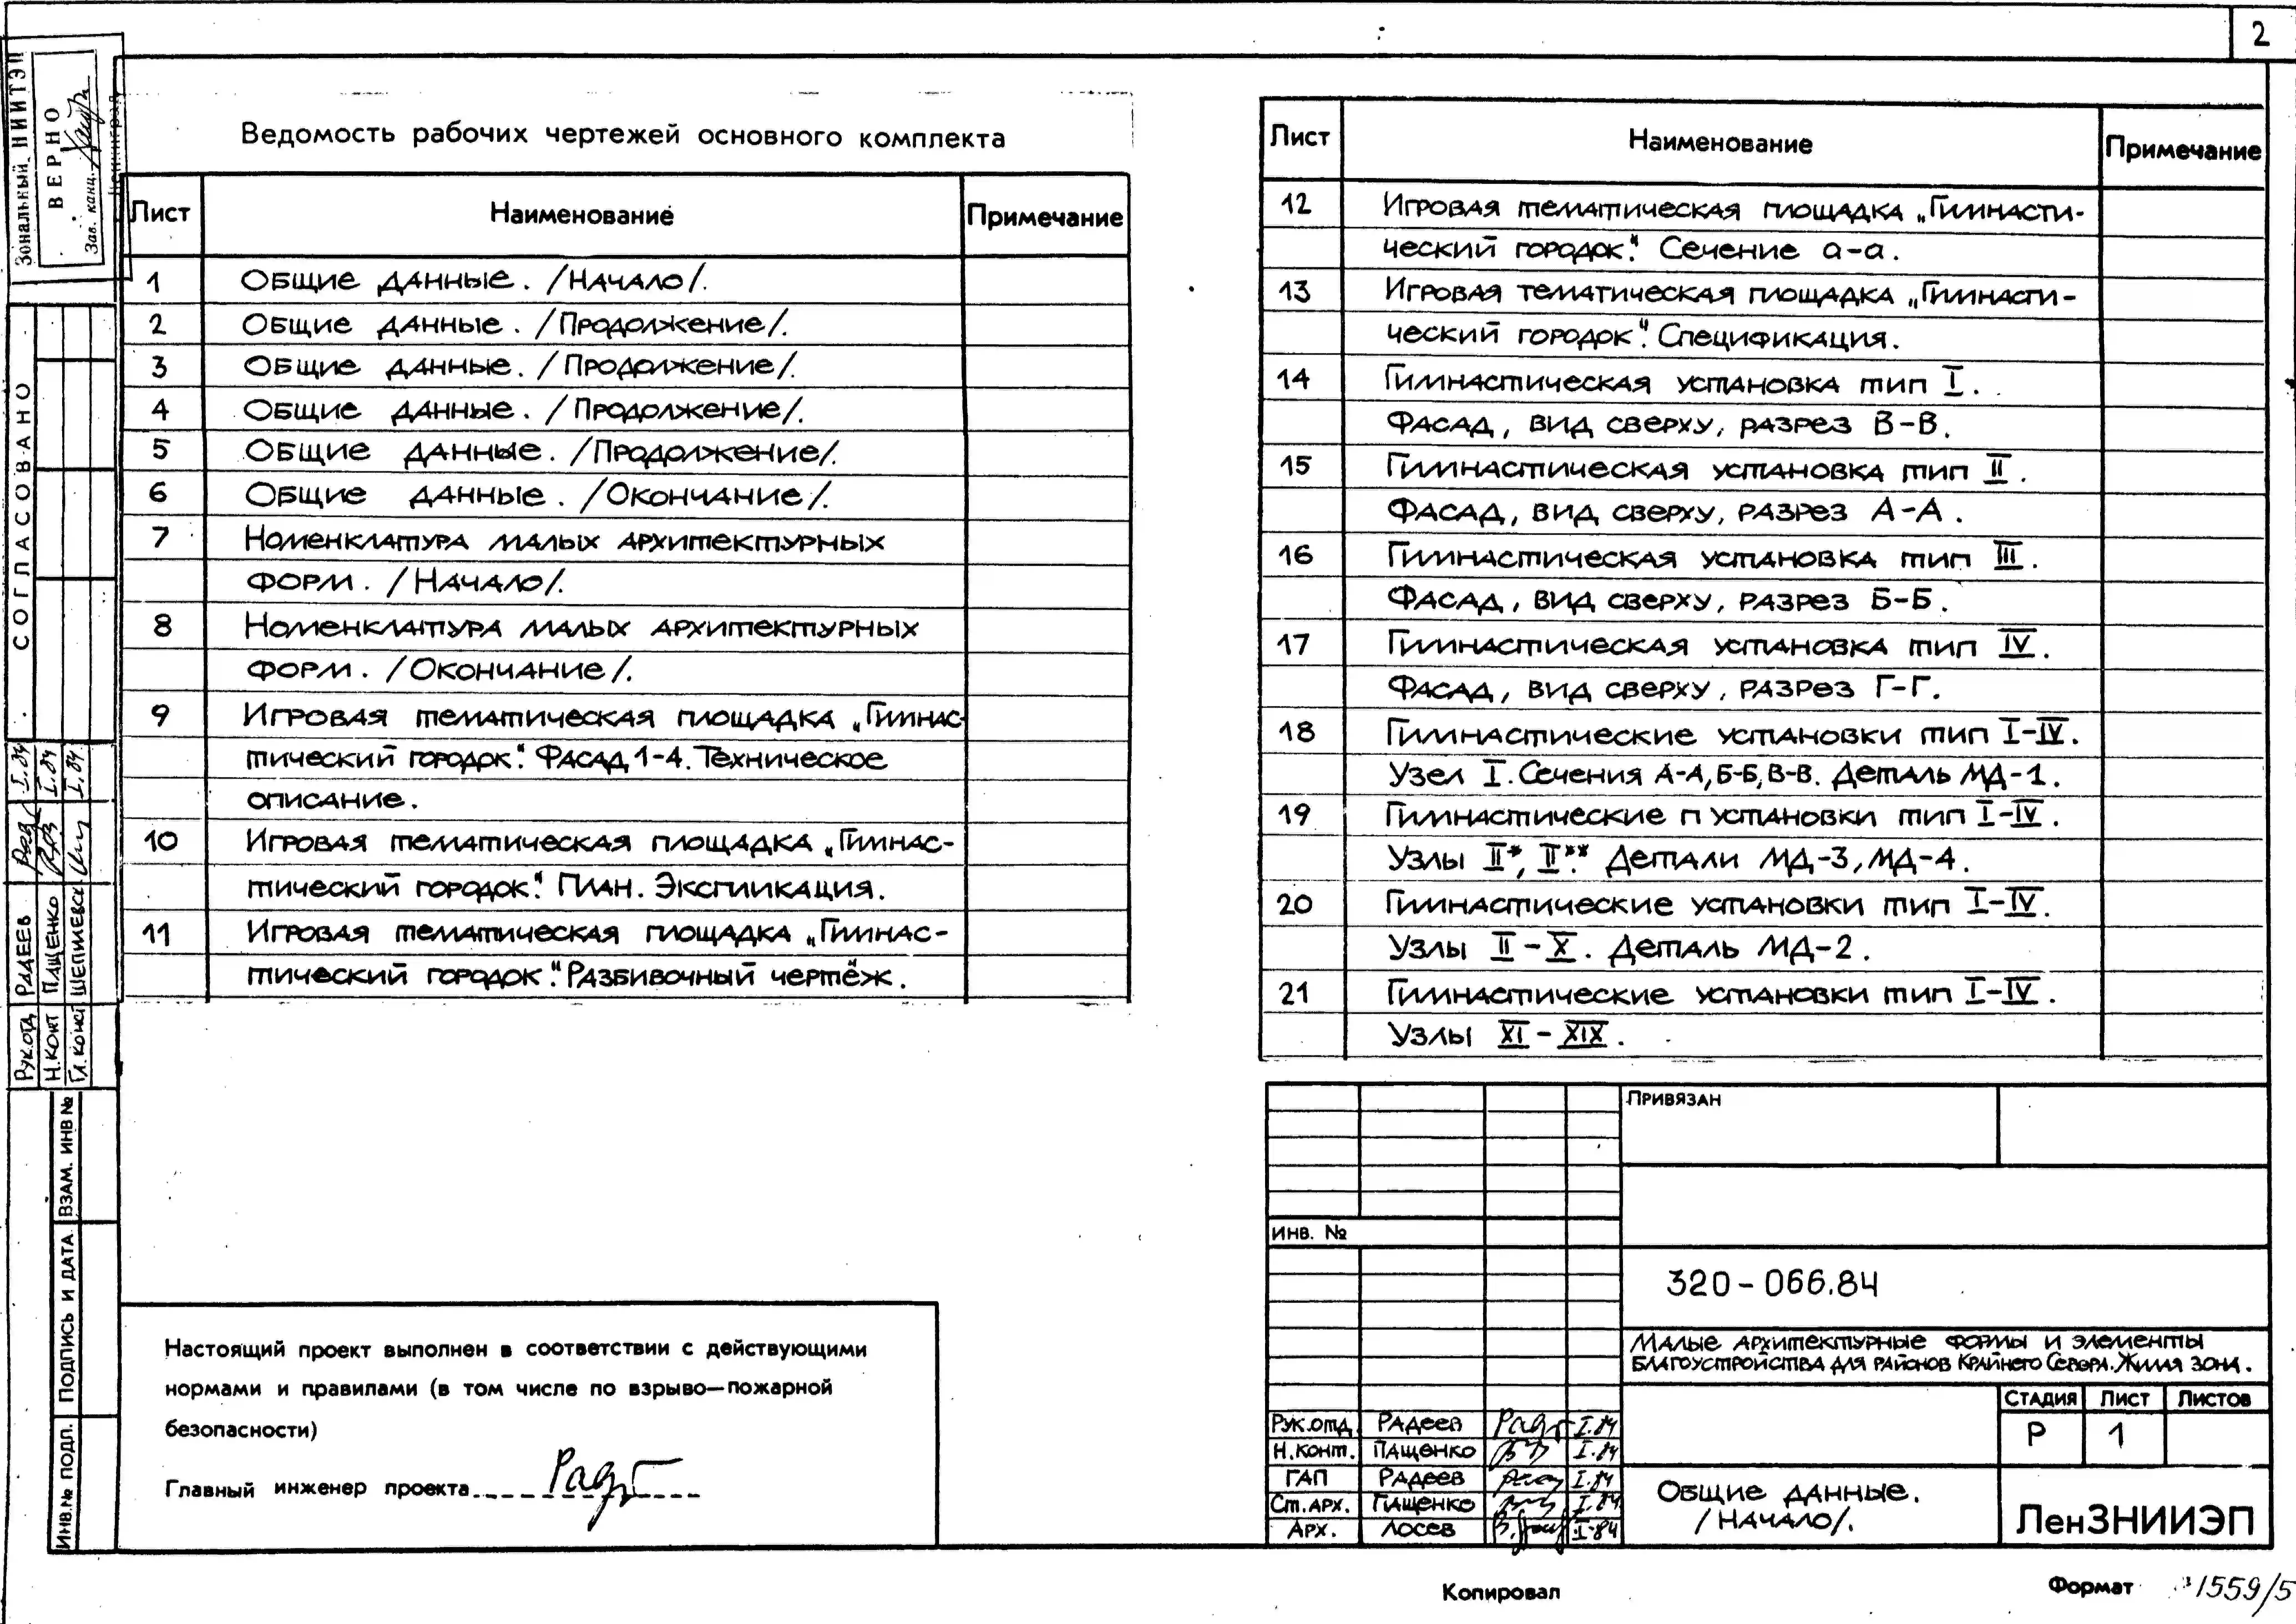 2
Зональный НИИТЭП
ВЕРНО
Зав. канц.
СОГЛАСОВАНО
Рук.отд РАДЕЕВ I.84
Н.КОНТ ПАЩЕНКО I.84
Гл.конст ШЕПИЧЕВСК I.84
ВЗАМ. ИНВ №
ПОДПИСЬ И ДАТА
ИНВ.№ ПОДЛ.
Ведомость рабочих чертежей основного комплекта
Лист Наименование Примечание
1 Общие данные. /Начало/.
2 Общие данные. /Продолжение/.
3 Общие данные. /Продолжение/.
4 Общие данные. /Продолжение/.
5 Общие данные. /Продолжение/.
6 Общие данные. /Окончание/.
7 Номенклатура малых архитектурных
форм. /Начало/.
8 Номенклатура малых архитектурных
форм. /Окончание/.
9 Игровая тематическая площадка „Гимнас-
тический городок". Фасад 1-4. Техническое
описание.
10 Игровая тематическая площадка „Гимнас-
тический городок". План. Экспликация.
11 Игровая тематическая площадка „Гимнас-
тический городок". Разбивочный чертёж.
Лист Наименование Примечание
12 Игровая тематическая площадка „Гимнасти-
ческий городок". Сечение а-а.
13 Игровая тематическая площадка „Гимнасти-
ческий городок". Спецификация.
14 Гимнастическая установка тип I.
Фасад, вид сверху, разрез В-В.
15 Гимнастическая установка тип II.
Фасад, вид сверху, разрез А-А.
16 Гимнастическая установка тип III.
Фасад, вид сверху, разрез Б-Б.
17 Гимнастическая установка тип IV.
Фасад, вид сверху, разрез Г-Г.
18 Гимнастические установки тип I-IV.
Узел I. Сечения А-А, Б-Б, В-В. Деталь МД-1.
19 Гимнастические п установки тип I-IV.
Узлы II*, II**. Детали МД-3, МД-4.
20 Гимнастические установки тип I-IV.
Узлы II - X. Деталь МД-2.
21 Гимнастические установки тип I-IV.
Узлы XI - XIX.
Настоящий проект выполнен в соответствии с действующими
нормами и правилами (в том числе по взрыво—пожарной
безопасности)
Главный инженер проекта
ПРИВЯЗАН
ИНВ. №
320-066.84
Малые архитектурные формы и элементы
благоустройства для районов Крайнего Севера. Жилая зона.
СТАДИЯ ЛИСТ ЛИСТОВ
Р 1
Рук.отд. Радеев I.84
Н.конт. Пащенко I.84
ГАП Радеев I.84
Ст.арх. Пащенко I.84
Арх. Лосев I-84
Общие данные.
/Начало/.
ЛенЗНИИЭП
Копировал
Формат 1559/5